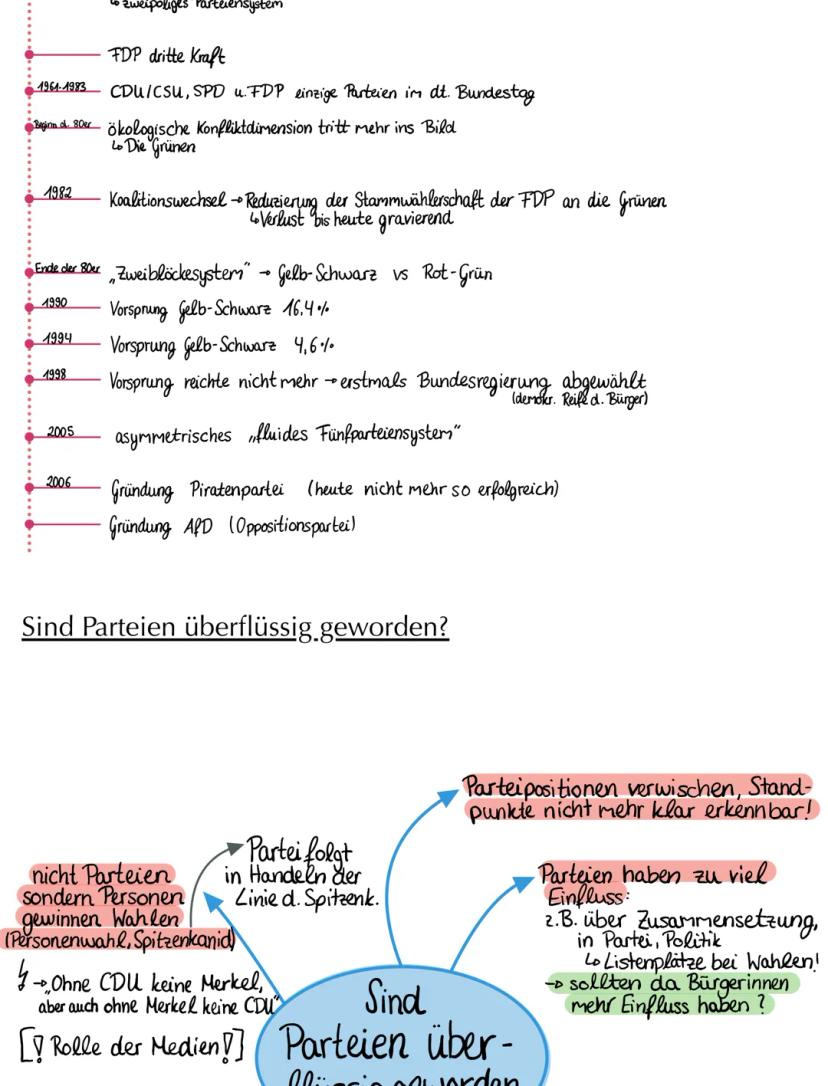 ↳ zweipoliges Parteiensystem
FDP dritte Kraft
1961-1983 CDU/CSU, SPD u. FDP einzige Parteien im dt. Bundestag
Beginn d. 80er ökologische Konfliktdimension tritt mehr ins Bild
↳ Die Grünen
1982 Koalitionswechsel → Reduzierung der Stammwählerschaft der FDP an die Grünen
↳ Verlust bis heute gravierend
Ende der 80er „Zweiblöckesystem" → Gelb-Schwarz vs Rot-Grün
1990 Vorsprung Gelb-Schwarz 16,4%
1994 Vorsprung Gelb-Schwarz 4,6%
1998 Vorsprung reichte nicht mehr → erstmals Bundesregierung abgewählt
(demokr. Reife d. Bürger)
2005 asymmetrisches „fluides Fünfparteiensystem"
2006 Gründung Piratenpartei (heute nicht mehr so erfolgreich)
Gründung AfD (Oppositionspartei)
Sind Parteien überflüssig geworden?
Parteipositionen verwischen, Stand-
punkte nicht mehr klar erkennbar!
Partei folgt
in Handeln der
Linie d. Spitzenk.
nicht Parteien
sondern Personen
gewinnen Wahlen
(Personenwahl, Spitzenkanid)
↯ → „Ohne CDU keine Merkel,
aber auch ohne Merkel keine CDU"
[! Rolle der Medien !]
Parteien haben zu viel
Einfluss:
z.B. über Zusammensetzung,
in Partei, Politik
↳ Listenplätze bei Wahlen!
→ sollten da Bürgerinnen
mehr Einfluss haben ?
Sind
Parteien über-
flüssig geworden